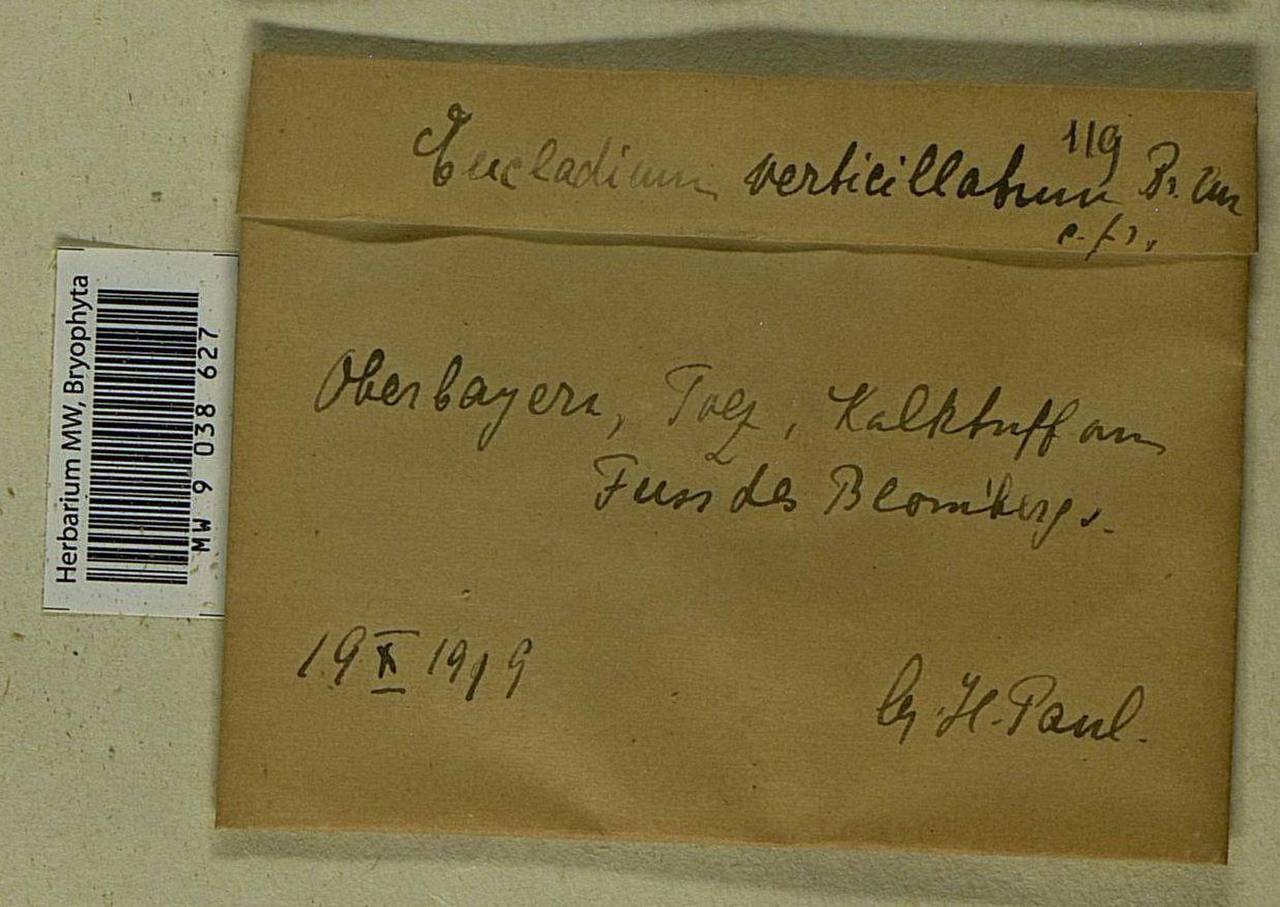 119
Eucladium verticillatum Br. eur
c. fr.
Oberbayern, Tölz, Kalktuff am
Fuss des Blombergs.
19 X 1919
lg. H. Paul.
Herbarium MW, Bryophyta
MW 9 038 627